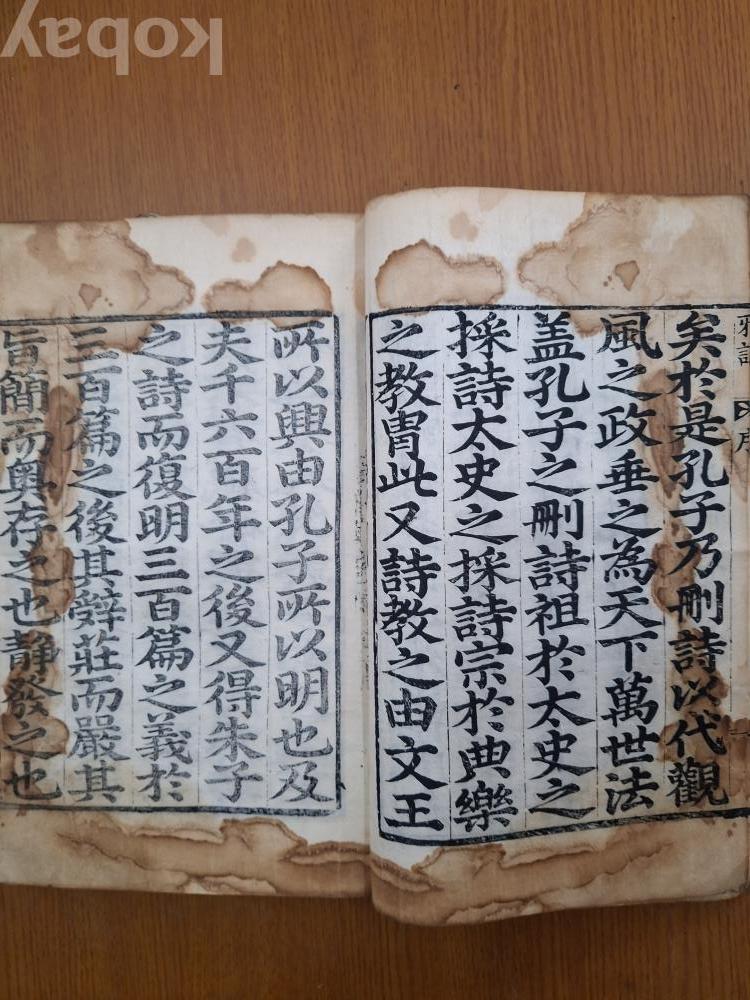 kobay
雅誦
序
矣於是孔子乃刪詩以代觀
風之政垂之為天下萬世法
盖孔子之刪詩祖於太史之
採詩太史之採詩宗於典樂
之教冑此又詩教之由文王
所以興由孔子所以明也及
夫千六百年之後又得朱子
之詩而復明三百篇之義於
三百篇之後其辭莊而嚴其
旨簡而奧存之也靜發之也